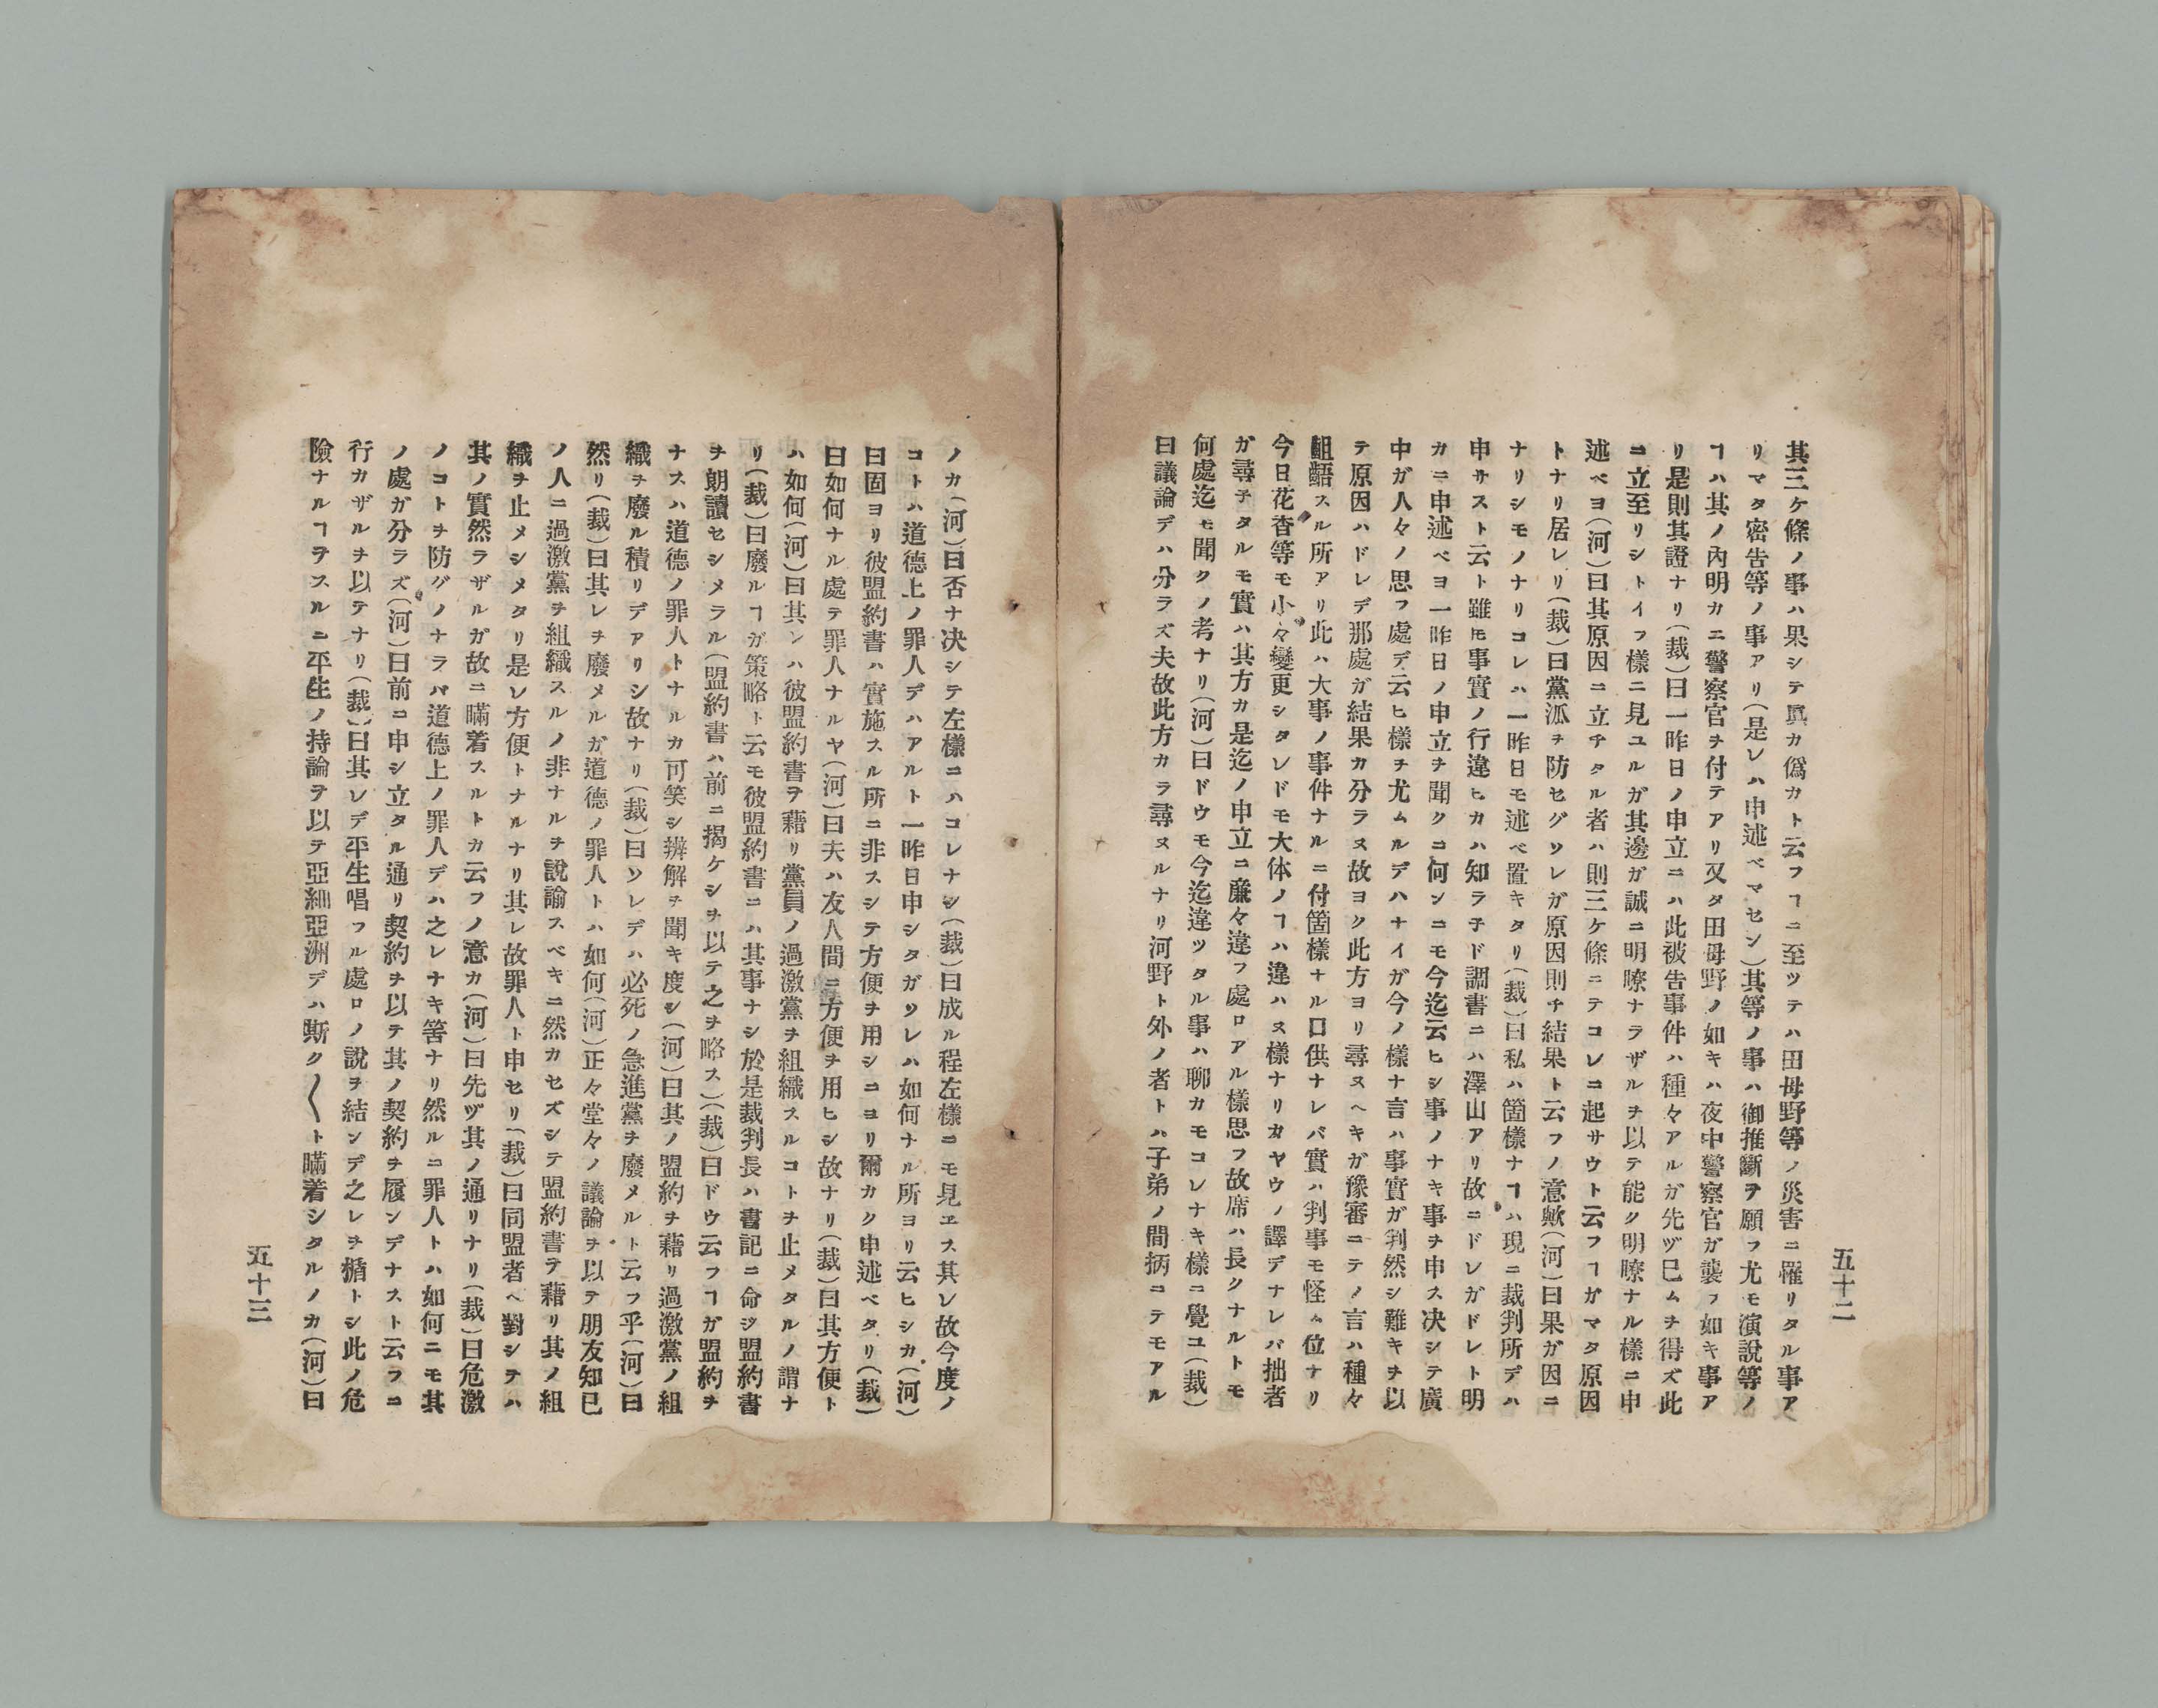 五十二
其三ケ條ノ事ハ果シテ眞カ僞カト云フヿニ至ツテハ田母野等ノ災害ニ罹リタル事ア
リマタ密告等ノ事アリ(是レハ申述ベマセン)其等ノ事ハ御推斷ヲ願フ尤モ演説等ノ
ヿハ其ノ内明カニ警察官ヲ付テアリ又タ田母野ノ如キハ夜中警察官ガ襲フ如キ事ア
リ是則其證ナリ(裁)曰一昨日ノ申立ニハ此被告事件ハ種々アルガ先ヅ已ムヲ得ズ此
ニ立至リシトイフ樣ニ見ユルガ其邊ガ誠ニ明瞭ナラザルヲ以テ能ク明瞭ナル樣ニ申
述ベヨ(河)曰其原因ニ立チタル者ハ則三ケ條ニテコレニ起サウト云フヿガマタ原因
トナリ居レリ(裁)曰黨派ヲ防セグソレガ原因則チ結果ト云フノ意歟(河)曰果ガ因ニ
ナリシモノナリコレハ一昨日モ述ベ置キタリ(裁)曰私ハ箇樣ナヿハ現ニ裁判所デハ
申サスト云ト雖ヒ事實ノ行違ヒカハ知ラ子ド調書ニハ澤山アリ故ニドレガドレト明
カニ申述ベヨ一昨日ノ申立ヲ聞クニ何ンニモ今迄云ヒシ事ノナキ事ヲ申ス决シテ廣
中ガ人々ノ思フ處デ云ヒ樣ヲ尤ムルデハナイガ今ノ樣ナ言ハ事實ガ判然シ難キヲ以
テ原因ハドレデ那處ガ結果カ分ラヌ故ヨク此方ヨリ尋ヌヘキガ豫審ニテノ言ハ種々
齟齬スル所アリ此ハ大事ノ事件ナルニ付箇樣ナル口供ナレバ實ハ判事モ怪ム位ナリ
今日花香等モ小々變更シタレドモ大体ノヿハ違ハヌ樣ナリカヤウノ譯デナレバ拙者
ガ尋子タルモ實ハ其方カ是迄ノ申立ニ廉々違フ處ロアル樣思フ故席ハ長クナルトモ
何處迄モ聞クノ考ナリ(河)曰ドウモ今迄違ツタル事ハ聊カモコレナキ樣ニ覺ユ(裁)
曰議論デハ分ラズ夫故此方カラ尋ヌルナリ河野ト外ノ者トハ子弟ノ間柄ニテモアル
ノカ(河)曰否ナ决シテ左樣ニハコレナシ(裁)曰成ル程左樣ニモ見エス其レ故今度ノ
コトハ道德上ノ罪人デハアルト一昨日申シタガソレハ如何ナル所ヨリ云ヒシカ(河)
曰固ヨリ彼盟約書ハ實施スル所ニ非スシテ方便ヲ用シニヨリ爾カク申述ベタリ(裁)
曰如何ナル處テ罪人ナルヤ(河)曰夫ハ友人間ニ方便ヲ用ヒシ故ナリ(裁)曰其方便ト
ハ如何(河)曰其レハ彼盟約書ヲ藉リ黨員ノ過激黨ヲ組織スルコトヲ止メタルノ謂ナ
リ(裁)曰廢ルヿガ策略ト云モ彼盟約書ニハ其事ナシ於是裁判長ハ書記ニ命ジ盟約書
ヲ朗讀セシメラル(盟約書ハ前ニ揭ケシヲ以テ之ヲ略ス)(裁)曰ドウ云フヿガ盟約ヲ
ナスハ道德ノ罪人トナルカ可笑シ辨解ヲ聞キ度シ(河)曰其ノ盟約ヲ藉リ過激黨ノ組
織ヲ廢ル積リデアリシ故ナリ(裁)曰ソレデハ必死ノ急進黨ヲ廢メルト云フ乎(河)曰
然リ(裁)曰其レヲ廢メルガ道德ノ罪人トハ如何(河)正々堂々ノ議論ヲ以テ朋友知已
ノ人ニ過激黨ヲ組織スルノ非ナルヲ說諭スベキニ然カセズシテ盟約書ヲ藉リ其ノ組
織ヲ止メシメタリ是レ方便トナルナリ其レ故罪人ト申セリ(裁)曰同盟者ヘ對シテハ
其ノ實然ラザルガ故ニ瞞着スルトカ云フノ意カ(河)曰先ヅ其ノ通リナリ(裁)曰危激
ノコトヲ防グノナラバ道德上ノ罪人デハ之レナキ筈ナリ然ルニ罪人トハ如何ニモ其
ノ處ガ分ラズ(河)曰前ニ申シ立タル通リ契約ヲ以テ其ノ契約ヲ履ンデナスト云フコ
行カザルヲ以テナリ(裁)曰其レデ平生唱フル處ロノ說ヲ結ンデ之レヲ楯トシ此ノ危
險ナルヿヲスルニ平生ノ持論ヲ以テ亞細亞洲デハ斯ク〱ト瞞着シタルノカ(河)曰
五十三